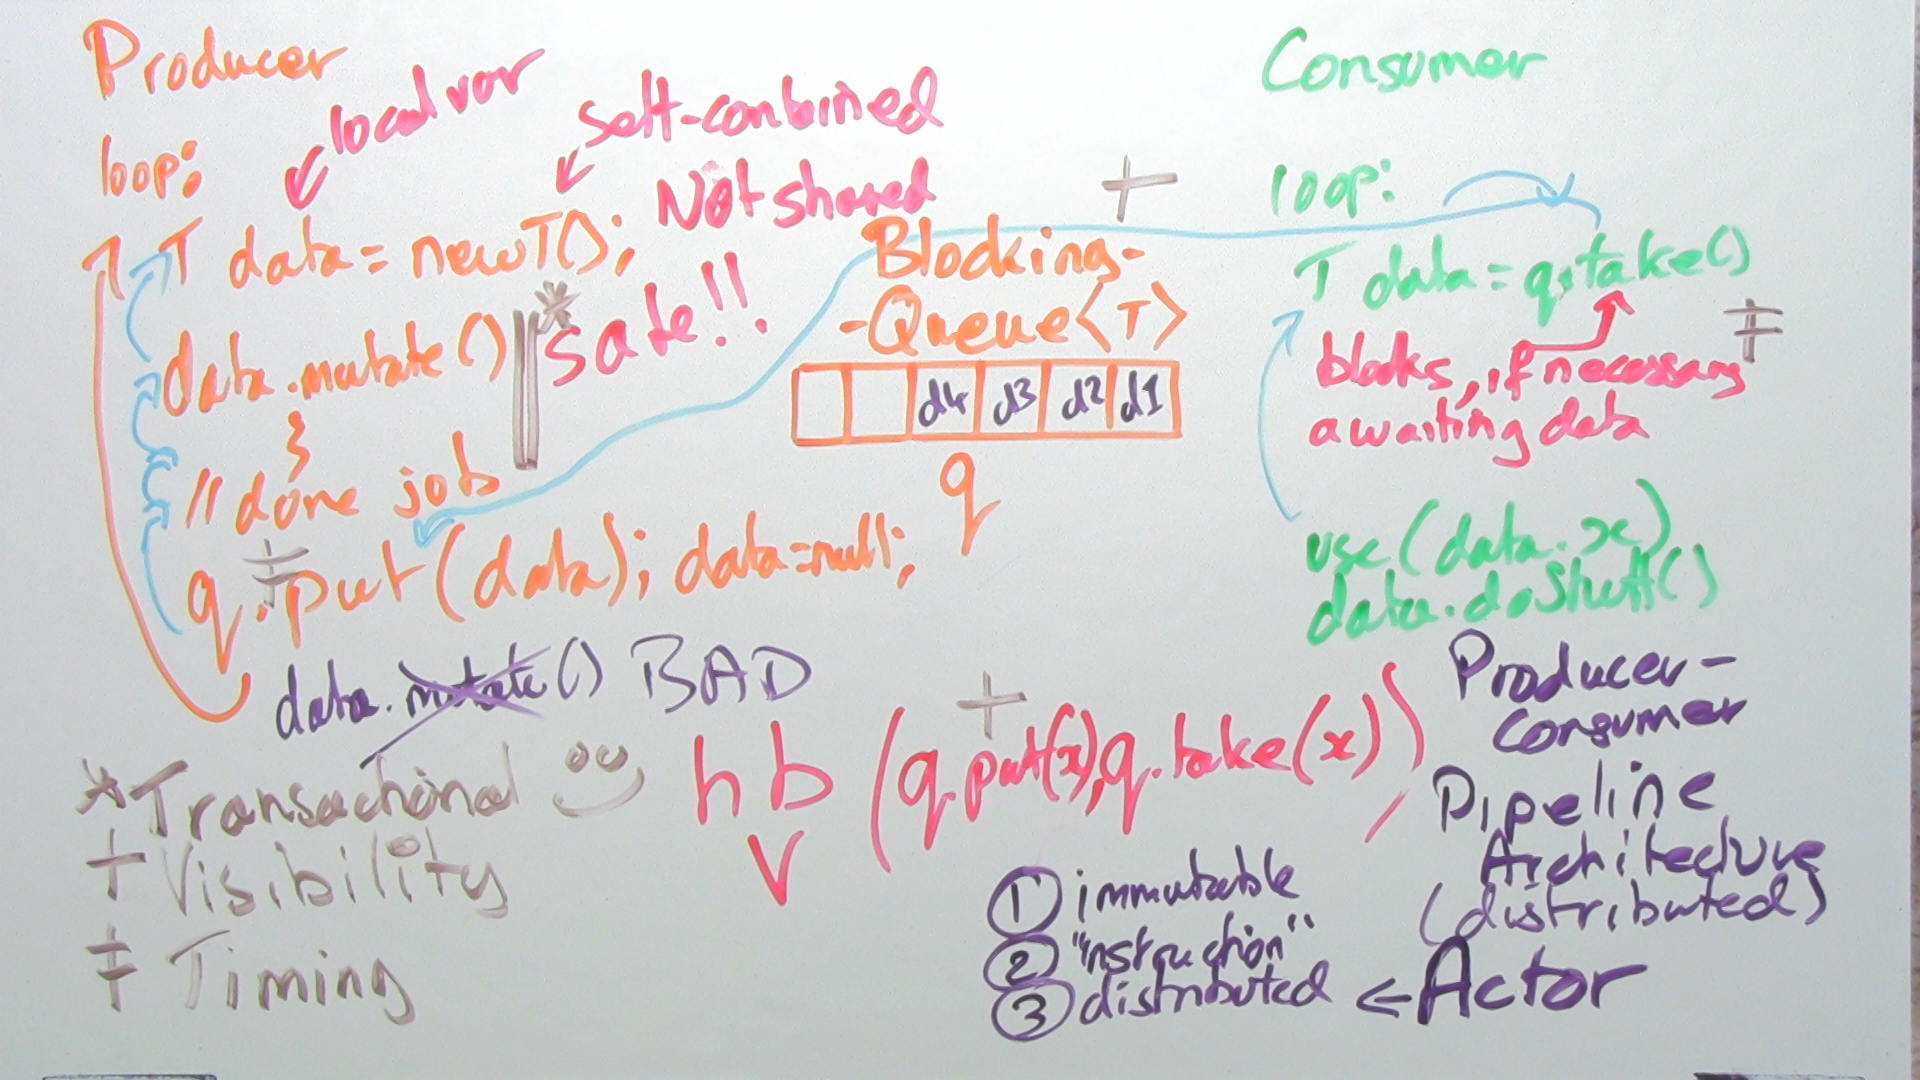 Producer
local var
self-conbined
Not shared
loop:
T data = new T();
* safe!!
data.mutate()
}
// done job
‡
q.put(data); data=null;
data.mutate() BAD
+
Blocking-
-Queue<T>
d4 d3 d2 d1
q
Consumer
loop:
T data = q.take()
‡
blocks, if necessary
awaiting data
use(data.x)
data.doStuff()
* Transactional
+ Visibility
‡ Timing
+
hb (q.put(x), q.take(x))
V
Producer-
Consumer
Pipeline
Architecture
(distributed)
① immutable
② "instruction"
③ distributed ← Actor